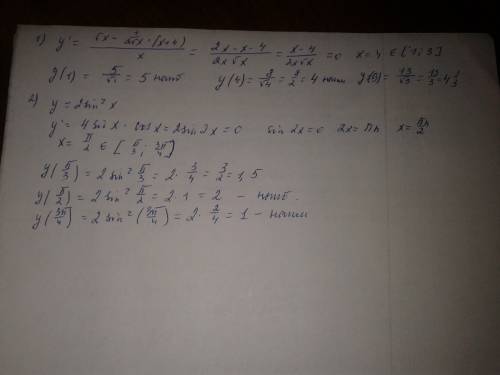 1) y' = (√x - 1/(2√x)·(x+4))/x = (2x-x-4)/(2x√x) = (x-4)/(2x√x) = 0 x=4 ∈ [1; 9]
y(1) = 5/√1 = 5 наиб y(4) = 8/√4 = 8/2 = 4 наим y(9) = 13/√9 = 13/3 = 4 1/3
2) y = 2sin² x
y' = 4 sin x · cos x = 2 sin 2x = 0 sin 2x = 0 2x = πn x = πn/2
x = π/2 ∈ [π/3; 3π/4]
y(π/3) = 2 sin² π/3 = 2 · 3/4 = 3/2 = 1,5
y(π/2) = 2 sin² π/2 = 2 · 1 = 2 - наиб.
y(3π/4) = 2 sin² (3π/4) = 2 · 2/4 = 1 - наим